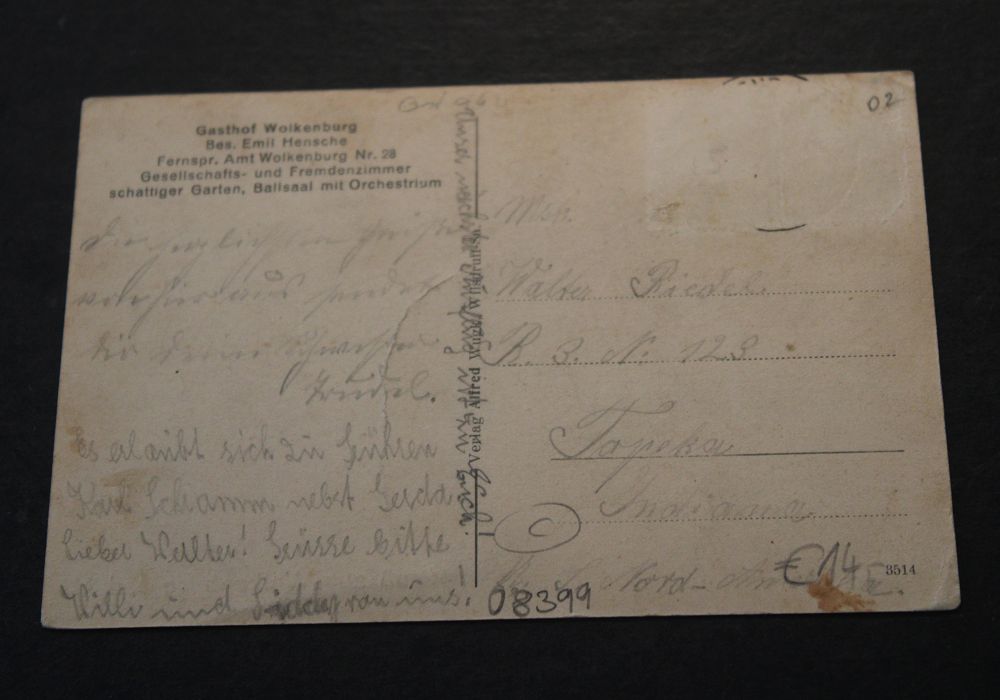 02
Gasthof Wolkenburg
Bes. Emil Hensche
Fernspr. Amt Wolkenburg Nr. 28
Gesellschafts- und Fremdenzimmer
schattiger Garten, Ballsaal mit Orchestrium
Die herzlichsten Grüße
von hier aus sendet
Dir deine Schwester
Trudel.
Es erlaubt sich zu
Karl Schramm nebst Gerda
Lieber Walter! Grüsse bitte
Willi und von uns!
Verlag Alfred
Walter Riedel.
R. 3. N. 123
Topeka
Indiana
Nord-
€14
3514
08399